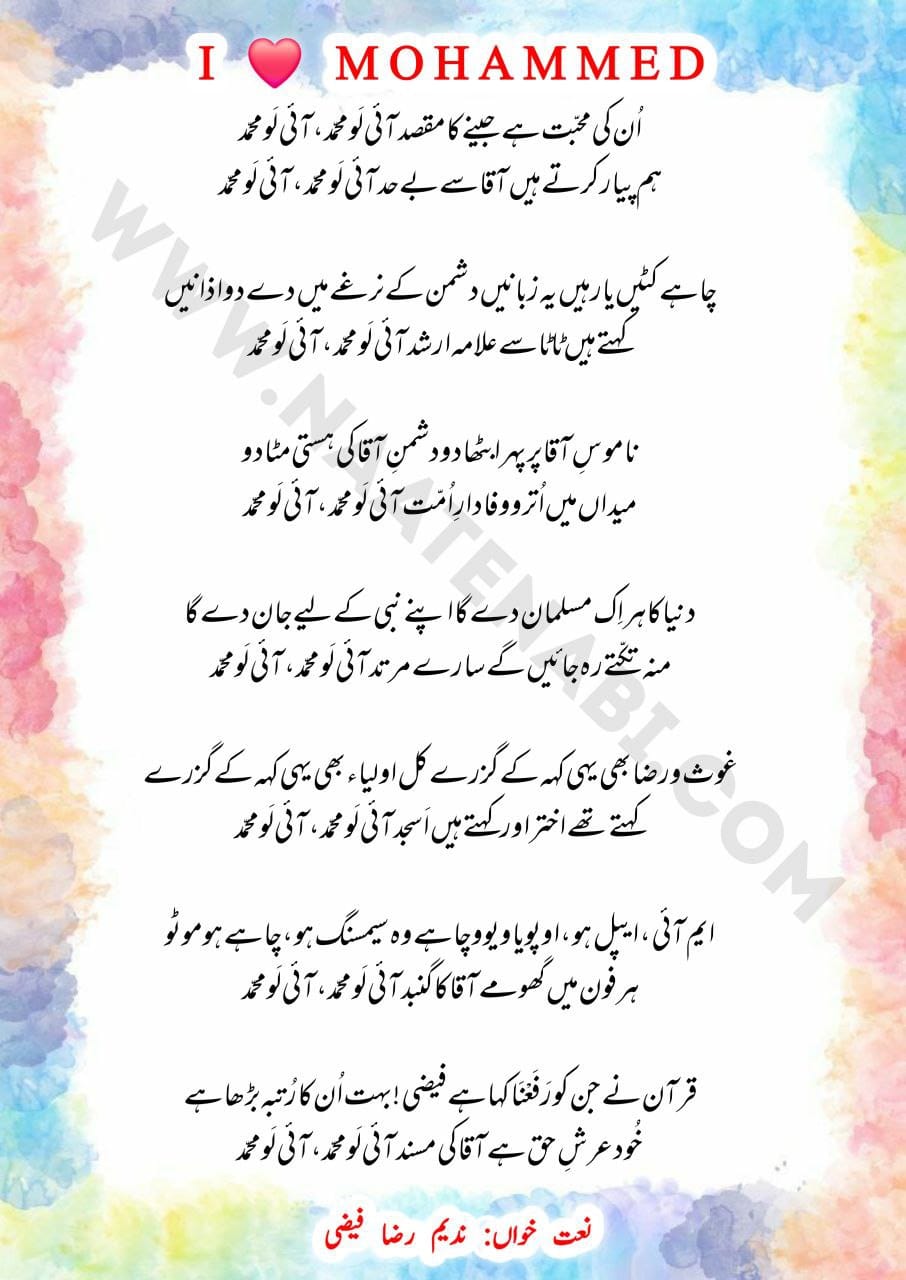 I ❤ MOHAMMED
اُن کی محبّت ہے جینے کا مقصد آئی لَو محمّد، آئی لَو محمّد
ہم پیار کرتے ہیں آقا سے بے حد آئی لَو محمّد، آئی لَو محمّد
چاہے کٹیں یا رہیں یہ زبانیں دشمن کے نرغے میں دے دو اذانیں
کہتے ہیں ٹاٹا سے علامہ ارشد آئی لَو محمّد، آئی لَو محمّد
ناموسِ آقا پر پہرا بٹھا دو دشمنِ آقا کی ہستی مٹا دو
میداں میں اُترو وفادارِ اُمّت آئی لَو محمّد، آئی لَو محمّد
دنیا کا ہر اِک مسلمان دے گا اپنے نبی کے لیے جان دے گا
منہ تکّتے رہ جائیں گے سارے مرتد آئی لَو محمّد، آئی لَو محمّد
غوث و رضا بھی یہی کہہ کے گزرے کل اولیاء بھی یہی کہہ کے گزرے
کہتے تھے اختر اور کہتے ہیں اَسجد آئی لَو محمّد، آئی لَو محمّد
ایم آئی، ایپل ہو، اوپو یا ویوو چاہے وہ سیمسنگ ہو، چاہے ہو موٹو
ہر فون میں گھومے آقا کا گنبد آئی لَو محمّد، آئی لَو محمّد
قرآن نے جن کو رَفَعْنَا کہا ہے فیضی! بہت اُن کا رُتبہ بڑھا ہے
خُود عرشِ حق ہے آقا کی مسند آئی لَو محمّد، آئی لَو محمّد
نعت خواں: ندیم رضا فیضی
WWW.NAATENABI.COM